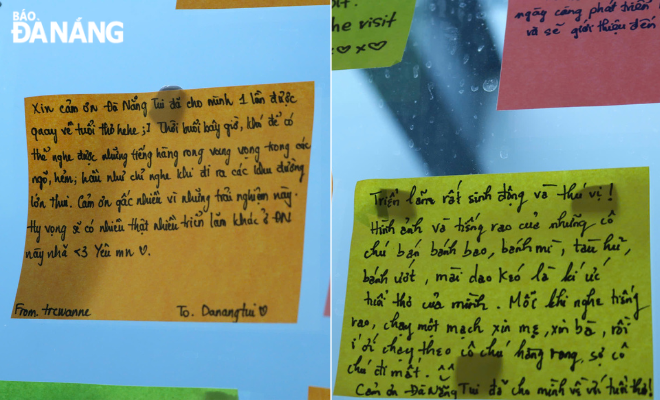 BÁO
ĐÀ NẴNG
Xin cảm ơn Đà Nẵng Tui đã cho mình 1 lần được
quay về tuổi thơ hehe ;] Thời buổi bây giờ, khó để có
thể nghe được những tiếng hàng rong vang vọng trong các
ngõ, hẻm; hầu như chỉ nghe khi đi ra các khu đường
lớn thui. Cảm ơn gấc nhiều vì những trải nghiệm này.
Hy vọng sẽ có nhiều thật nhiều triển lãm khác ở ĐN
này nhã <3 Yêu mn ♡.
From. trewanne
To. Danangtui ♡
he visit
♡ x ♡
ngày càng phát triển
và sẽ giới thiệu đến
Triển lãm rất sinh động và thú vị!
Hình ảnh và tiếng rao của những cô
chú bán bánh bao, bánh mì, tàu hũ,
bánh ướt, mài dao kéo là kí ức
tuổi thơ của mình. Mỗi khi nghe tiếng
rao, chạy một mạch xin mẹ, xin bà, rồi
í ới chạy theo cô chú hàng rong, sợ cô
chú đi mất. ^^
Cảm ơn Đà Nẵng Tui đã cho mình về với tuổi thơ!